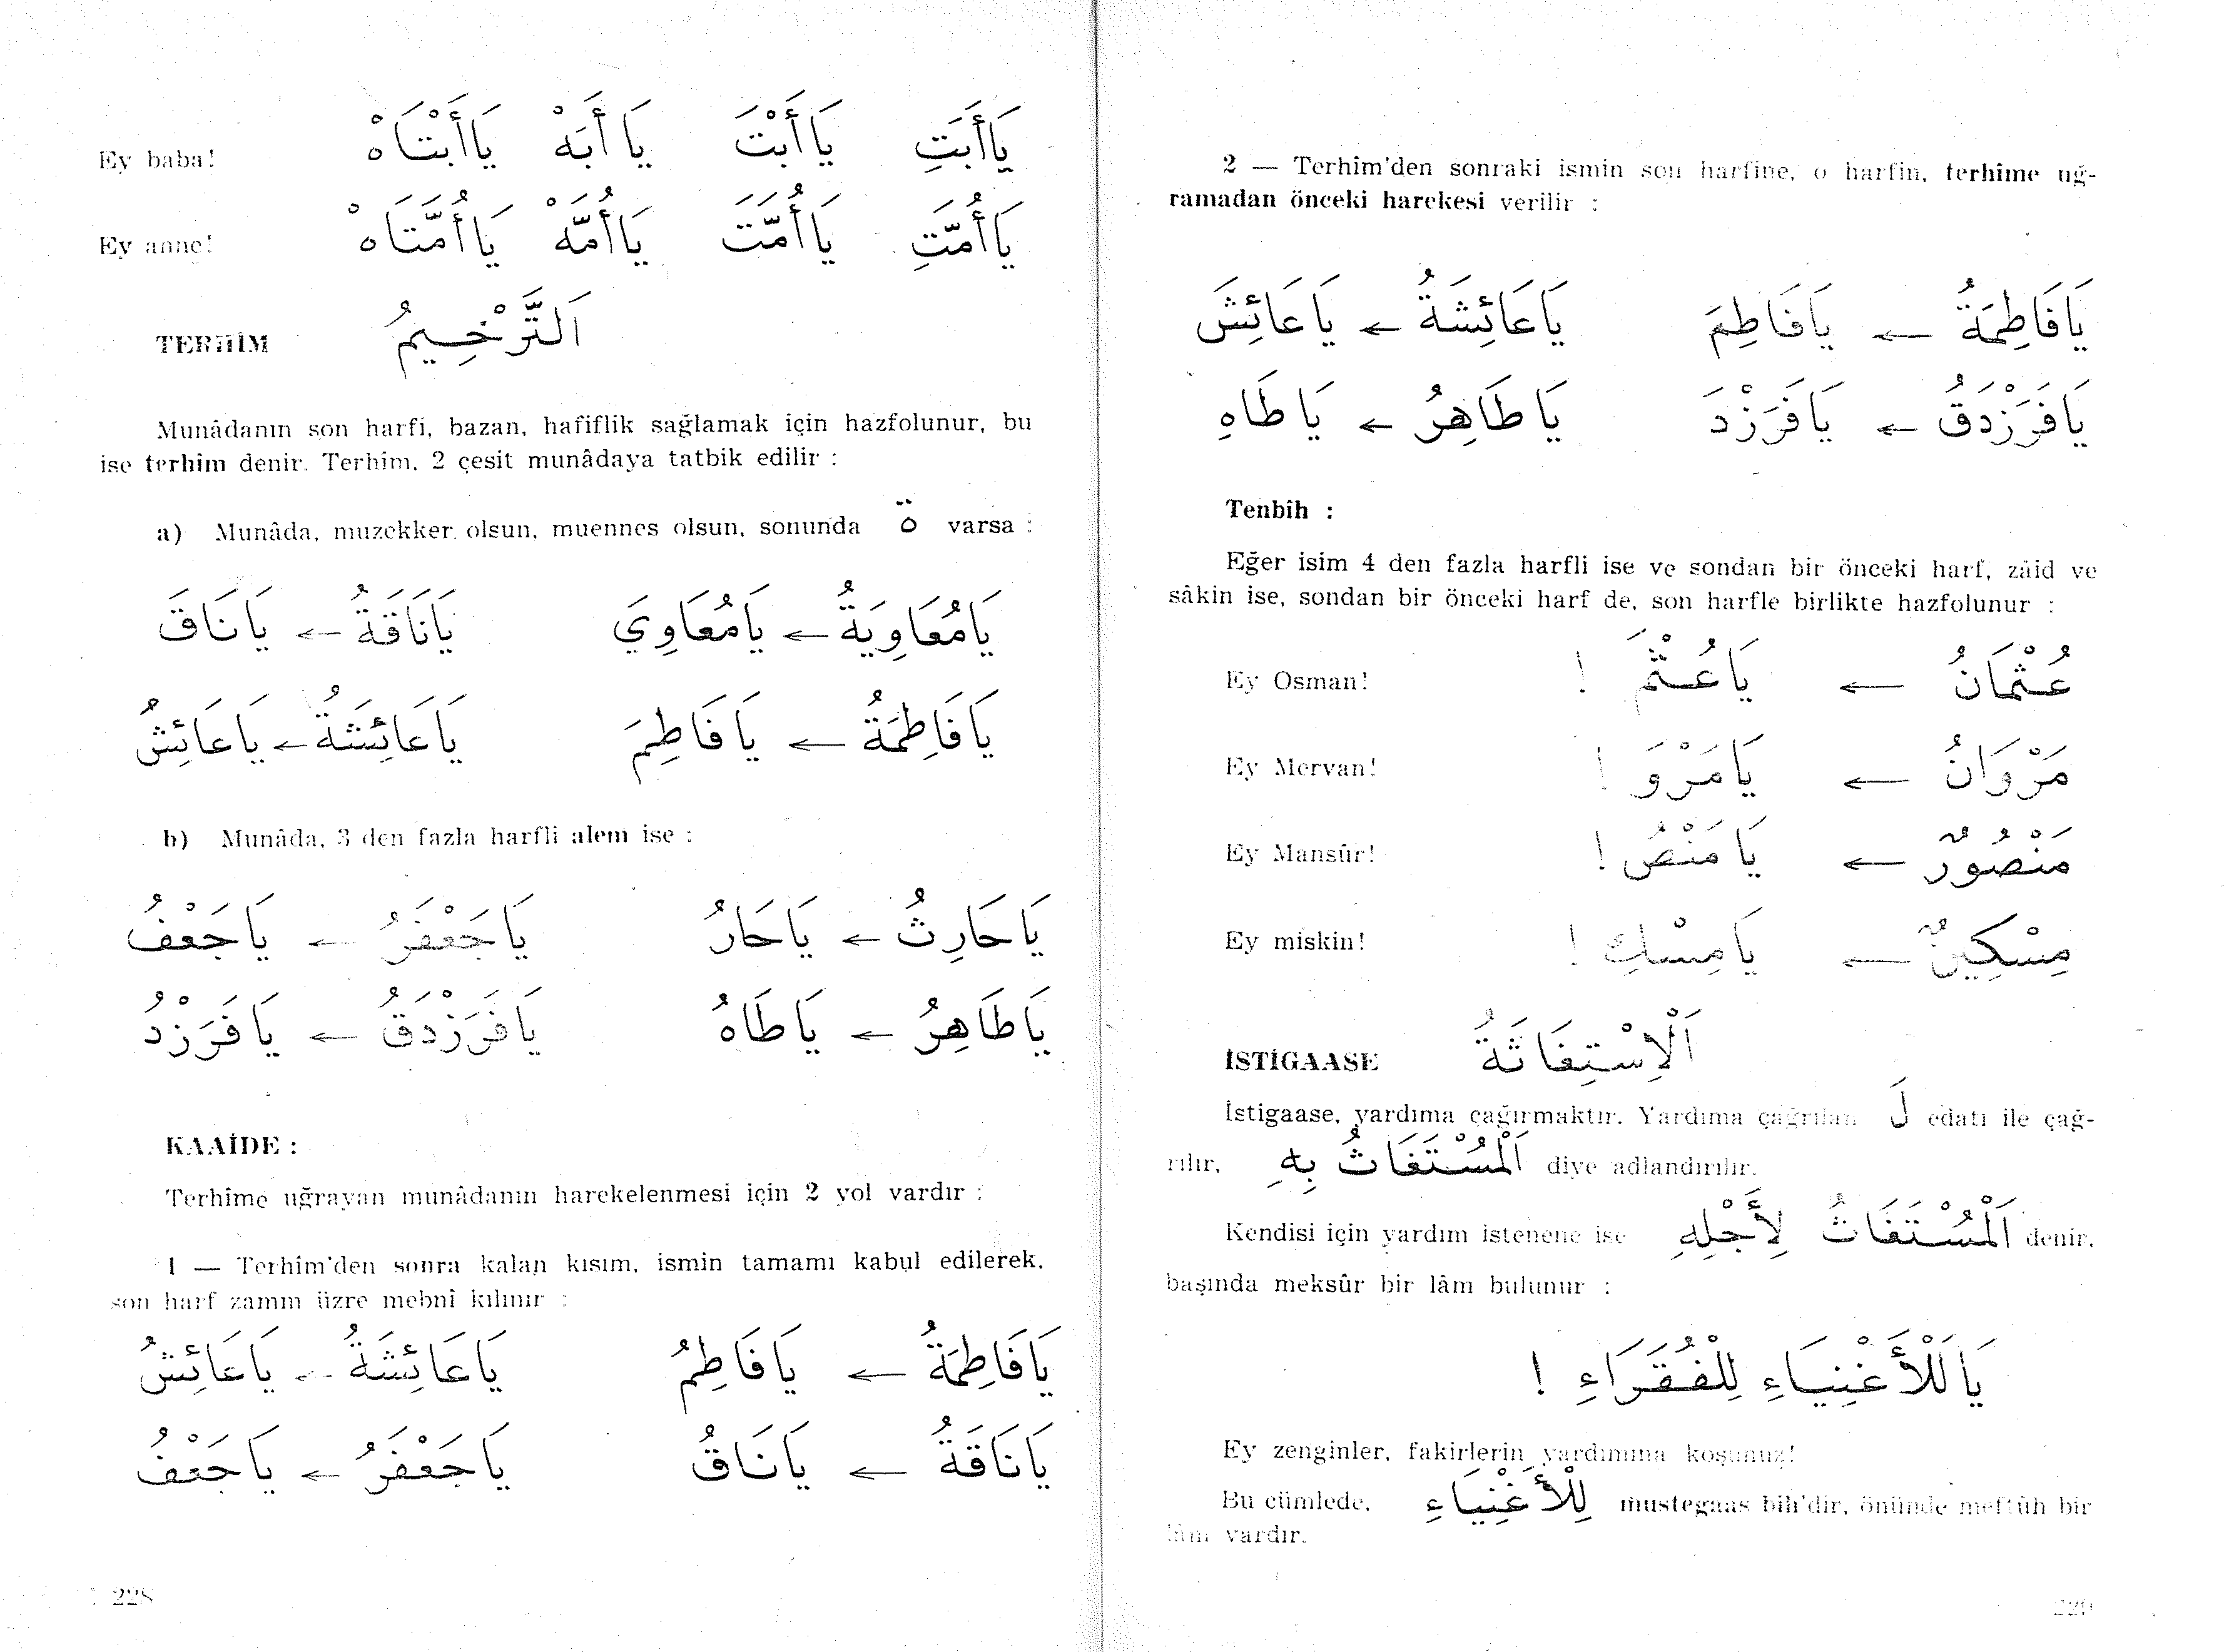 Ey baba! يَاأَبَتِ يَاأَبْتَ يَا أَبَهْ يَاأَبْتَاهْ
Ey anne! يَاأُمَّتِ يَاأُمَّتَ يَاأُمَّهْ يَاأُمَّتَاهْ
TERHÎM اَلتَّرْخِيمُ
Munâdanın son harfi, bazan, hafiflik sağlamak için hazfolunur, bu
ise terhîm denir. Terhîm, 2 çesit munâdaya tatbik edilir :
a) Munâda, muzekker olsun, muennes olsun, sonunda ة varsa :
يَامُعَاوِيَةُ ← يَامُعَاوِيَ يَانَاقَةُ ← يَانَاقَ
يَافَاطِمَةُ ← يَافَاطِمَ يَاعَائِشَةُ ← يَاعَائِشُ
b) Munâda, 3 den fazla harfli alem ise :
يَاحَارِثُ ← يَاحَارُ يَاجَعْفَرُ ← يَاجَعْفُ
يَاطَاهِرُ ← يَاطَاهُ يَافَرَزْدَقُ ← يَافَرَزْدُ
KAAİDE :
Terhîme uğrayan munâdanın harekelenmesi için 2 yol vardır :
1 — Terhîm'den sonra kalan kısım, ismin tamamı kabul edilerek,
son harf zamm üzre mebnî kılınır :
يَافَاطِمَةُ ← يَافَاطِمُ يَاعَائِشَةُ ← يَاعَائِشُ
يَانَاقَةُ ← يَانَاقُ يَاجَعْفَرُ ← يَاجَعْفُ
228
2 — Terhîm'den sonraki ismin son harfine, o harfin, terhîme uğ-
ramadan önceki harekesi verilir :
يَافَاطِمَةُ ← يَافَاطِمَ يَاعَائِشَةُ ← يَاعَائِشَ
يَافَرَزْدَقُ ← يَافَرَزْدَ يَاطَاهِرُ ← يَاطَاهِ
Tenbîh :
Eğer isim 4 den fazla harfli ise ve sondan bir önceki harf, zâid ve
sâkin ise, sondan bir önceki harf de, son harfle birlikte hazfolunur :
Ey Osman! عُثْمَانُ ← يَاعُثْمَ !
Ey Mervan! مَرْوَانُ ← يَامَرْوَ !
Ey Mansûr! مَنْصُورٌ ← يَامَنْصُ !
Ey miskin! مِسْكِينٌ ← يَامِسْكِ !
İSTİGAASE اَلْاِسْتِغَاثَةُ
İstigaase, yardıma çağırmaktır. Yardıma çağrılan لَ edatı ile çağ-
rılır, اَلْمُسْتَغَاثُ بِهِ diye adlandırılır.
Kendisi için yardım istenene ise اَلْمُسْتَغَاثُ لِأَجْلِهِ denir,
başında meksûr bir lâm bulunur :
يَا لَلْأَغْنِيَاءِ لِلْفُقَرَاءِ !
Ey zenginler, fakirlerin yardımına koşunuz!
Bu cümlede, لِلْأَغْنِيَاءِ mustegaas bih'dir, önünde meftûh bir
lâm vardır.
229